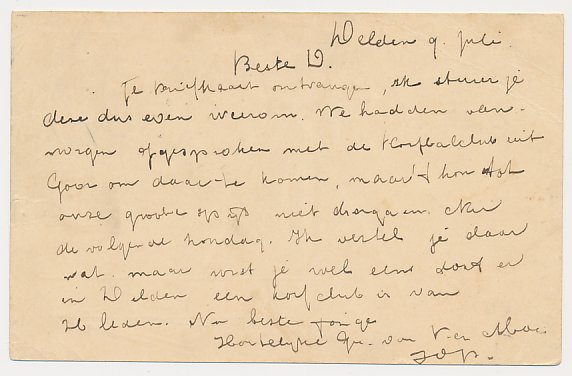 Delden 9 juli.
Beste D.
Je briefkaart ontvangen, ik stuur je
deze dus even weerom. We hadden van-
morgen afgesproken met de Korfbalclub uit
Goor om daar te komen, maar 't kon tot
onze groote spijt niet doorgaan. Nu
de volgende Zondag. Ik vertel je daar
wat. maar wist je wel eens dat er
in Delden een korfclub is van
leden. Nu beste jonge
Hartelijke Gr. van V. en Moe
Jop.